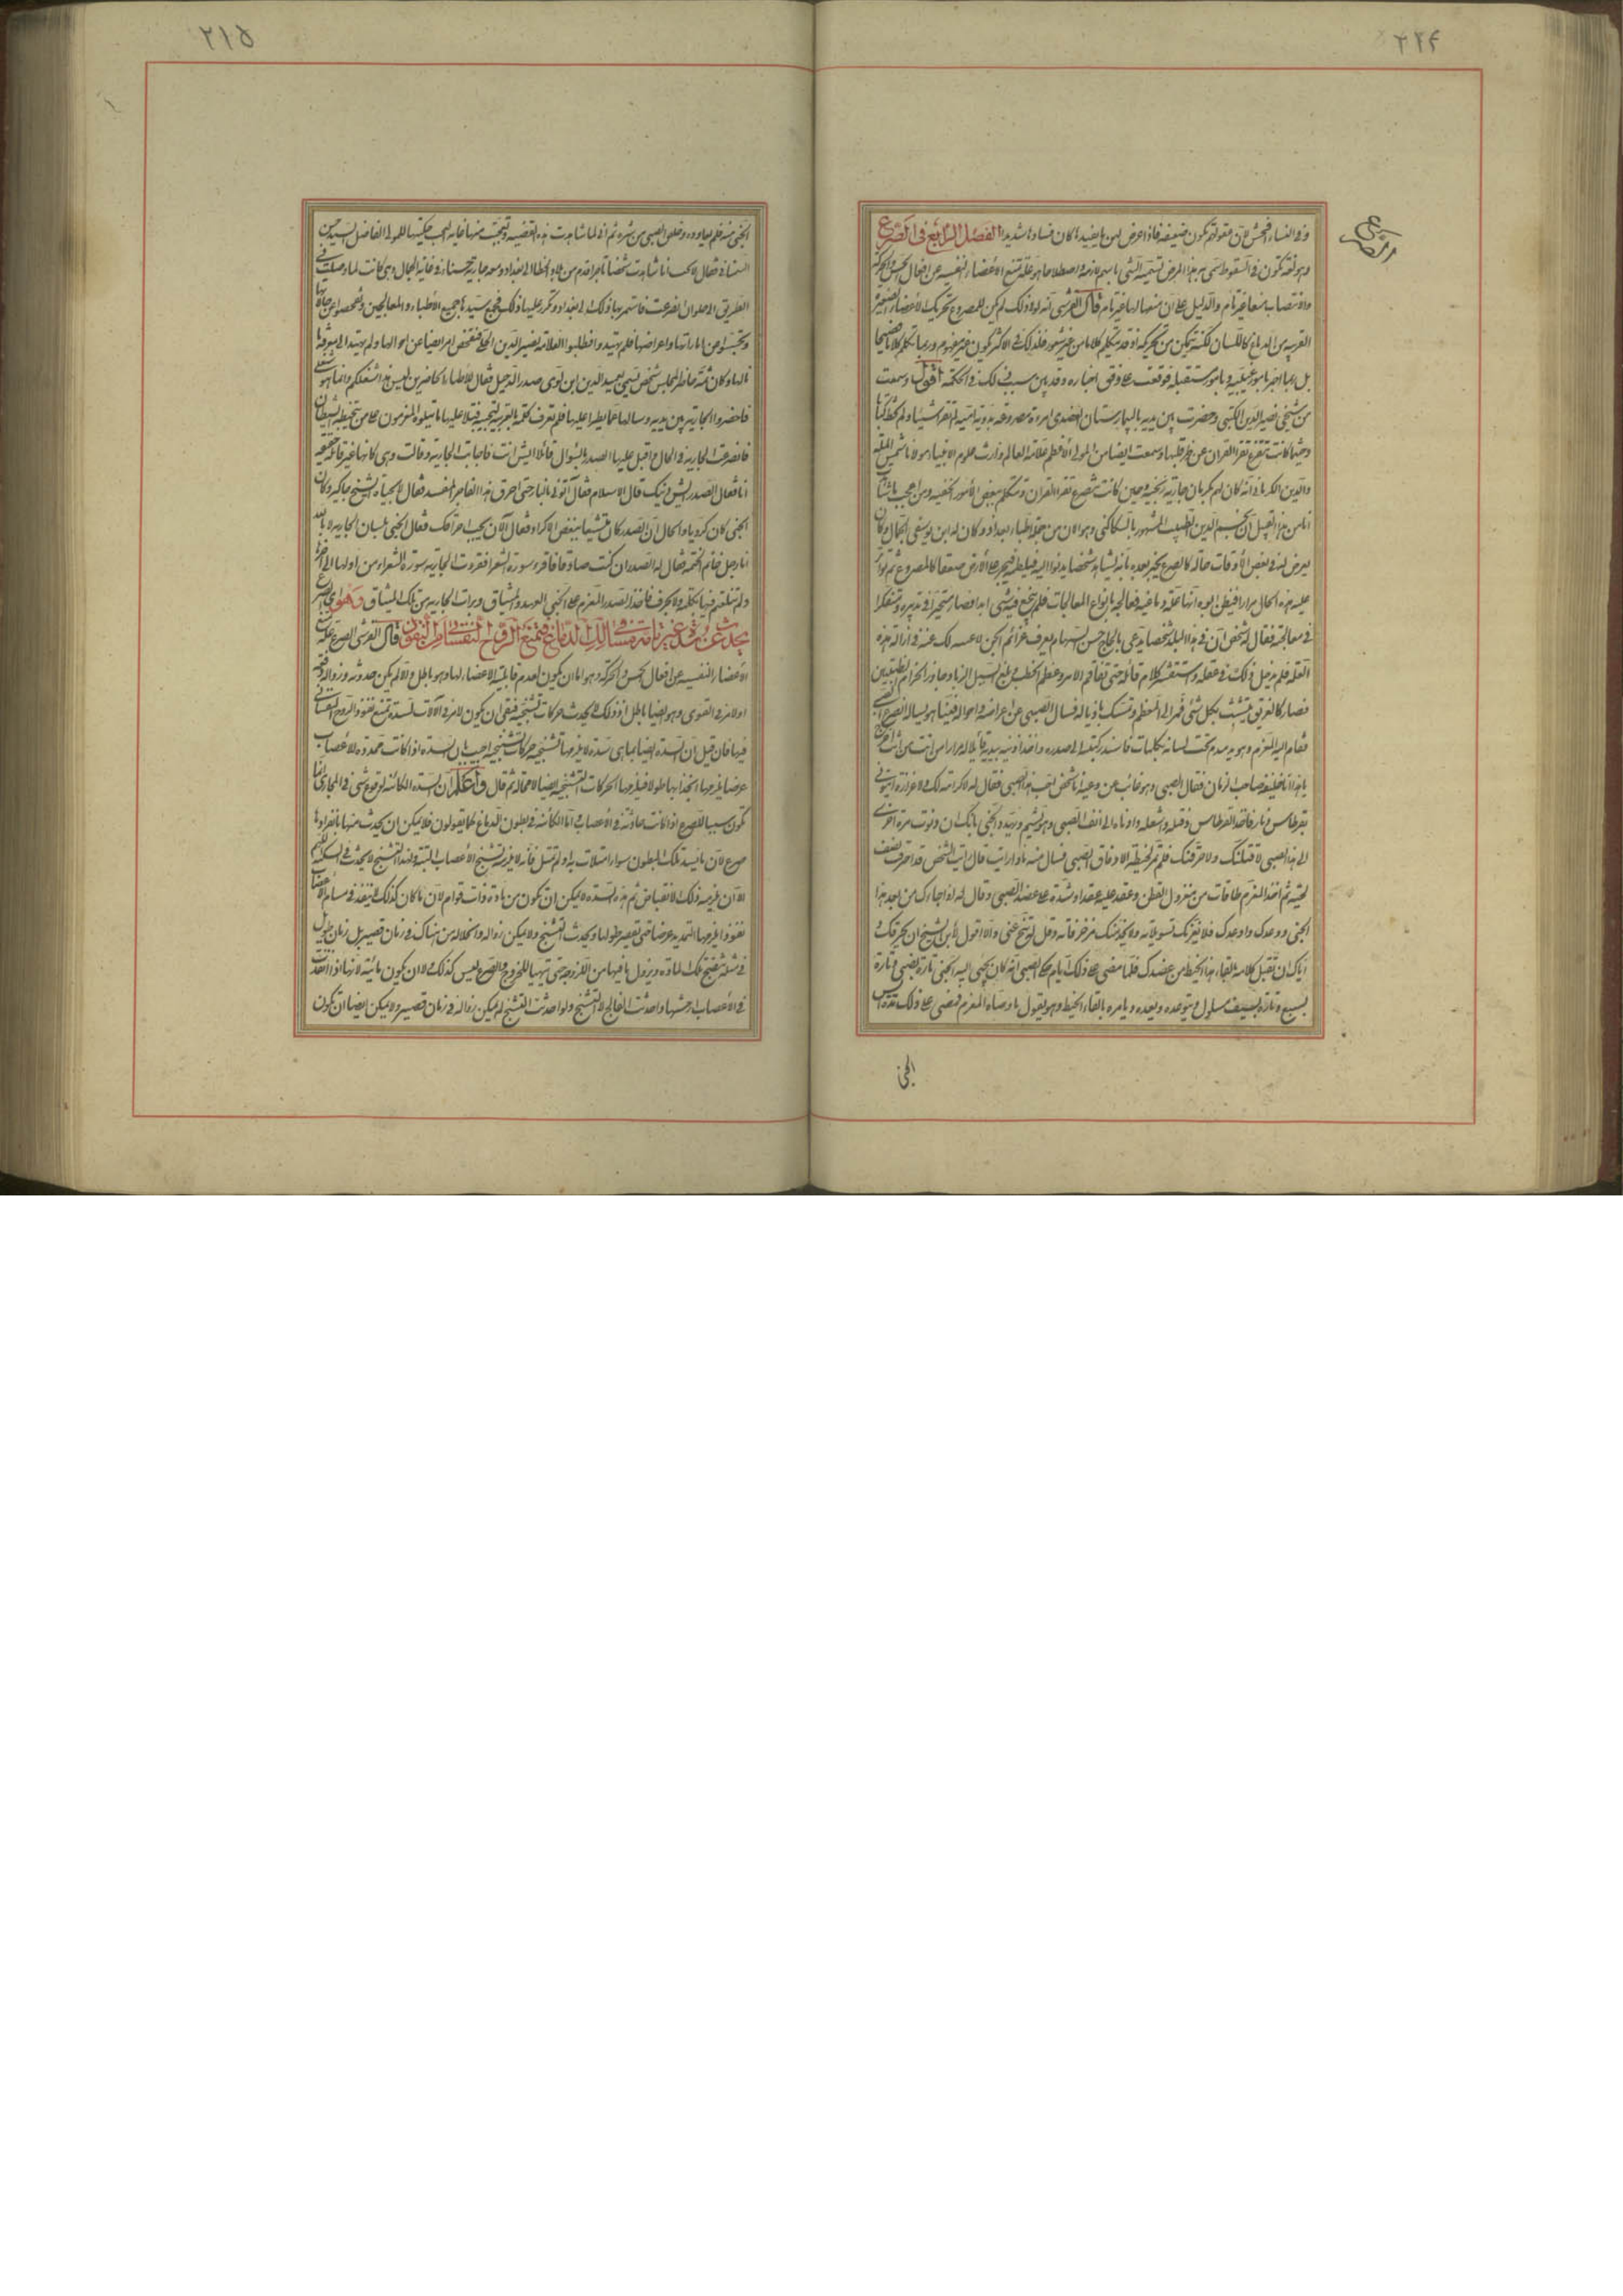 ٢٢٤
وفي النساء افحش لان مقولتهم تكون ضعيفة فاذا عرض لهن ما يفيد ما كان فسادها شديدا الفصل الرابع في الصرع
الصرع
وهو لغة تكون في السقوط سمي به هذا المرض تسمية الشئ باسم لازمه واصطلاحا هو علة تمنع الأعضاء النفسية عن افعال الحس والحركة
والانتصاب منعا غير تام والدليل على ان منعها لها غير تام قال القرشي انه لولا ذلك لم يكن للمصروع تحريك الأعضاء
القريبة من الدماغ كاللسان لكنه يتمكن من تحريكه اذ قد يتكلم كلاما من غير شعور فلذلك في الاكثر يكون غير مفهوم وربما تكلم كلاما فصيحا
بل ربما اخبر بامور غيبية وبامور مستقبلة فوقعت على وفق اخباره وقد بين سبب ذلك في الحكمة اقول وسمعت
من شيخي نصير الدين الكتبي وحضرت بين يديه بالبيمارستان العضدي امرءة مصروعة بدوية امية لم تقرا شيئا ولم
وحينما كانت تنصرع تقرا القران عن ظهر قلبها وسمعت ايضا من المولى الأعظم علامة العالم وارث علوم الانبياء مولانا شمس الملة
والدين الكرماني انه كان لهم بكرمان جارية وحين كانت تنصرع تقرا القران وتتكلم ببعض الأمور الخفية ومن اعجب ما شاء
الناس من هذا القبيل ان نجيم الدين الطبيب المشهور بالسكاكيني وهو الان من جملة اطباء بغداد وكان له ابن يوسفي الجمال وكان
يعرض له في بعض الأوقات حالة كالصرع يخبر بعده بانه يشاهد شخصا يدنو اليه فيلطمه فيخر على الأرض صعقا كالمصروع ثم تواتر
عليه هذه الحال مرارا فيظن ابوه انها علة دماغية فعالجه بانواع المعالجات فلم ينجع فيه شئ ابدا فصار متحيرا في تدبيره ومتفكرا
في معالجته فقال له شخص ان في هذا البلد شخصا يدعى بالحاج حسن يعرف عزائم الجن لا في ازالة هذه
العلة فلم يدخل ذلك في عقله واستقشر كلام قائله حتى تفاقم الامر وعظم الخطب وبلغ السيل الزبا وجاوز الحزام الطبيين
فصار كالغريق يتشبث بكل شئ فمر الى المعظم وتمسك باذياله فسال الصبي عن اعراضه واحواله
فقام اليه المعزم وهو تحت لسانه بكلمات قائلا له مرارا من انت من انت
انا خليفة صاحب الزمان فقال الصبي وهو غائب عن وعيه انا شخص احب هذا الصبي فقال له لا كرامة لك
بقرطاس ونار فاخذ القرطاس وفتله واشعله وادناه الى انف الصبي وهو يشم ويهدد الجني بانك ان دنوت مرة اخرى
الى هذا الصبي لاقتلنك ولاحرقنك فلم تمر لحيظة الا وفاق الصبي فسال منه ماذا رايت قال رايت الشخص قد احترق نصف
لحيته ثم اخذ المعزم طاقات من مغزول القطن وعقد عليه عقدا وشده على عضد الصبي وقال له اذا جاءك من بعد هذا
الجني ووعدك واوعدك فلا يغرنك تسويلاته ولا يخدعنك مزخرفاته وقل له تنح عني والا اقول لابي الشيخ ان يحرقك و
اياك ان تقبل كلامه بالقاء هذا الخيط من عضدك فلما مضى على ذلك ايام حكى الصبي انه كان يجئ اليه الجني تارة بصبي وتارة
بسبع وتارة بسيف مسلول ويتوعده ويعده ويامره بالقاء الخيط وهو يقول ما وصاه المعزم فمضى على ذلك
الجني
٢١٥
الجني منه فلم يعاوده وخلص الصبي من شره ثم اني لما شاهدت هذه القضية وتعجبت منها غاية العجب حكيتها للمولى الفاضل السيد حسن
فقال لا تعجب انا شاهدت شخصا تاجرا قدم من بلاد الخطا الى بغداد ومعه جارية حسناء في غاية الجمال وهي كانت لما وصلت في
الطريق الى حلوان انصرعت فاستمر بها ذلك الى بغداد وتكرر عليها ذلك فجمع سيدها جميع الأطباء والمعالجين وتفحصوا عن حالها
وتجسسوا من اماراتها واعراضها فلم يهتدوا فطلبوا العلامة نصير الدين فتفحص ايضا عن احوالها ولم يهتد الى معرفة
حالها وكان ثمة حاضر المجلس شخص يسمى بعميد الدين ابن لوى صدر الدجيل فقال للأطباء الحاضرين ليس هذا شغلكم وانما هو شغلي
فاحضروا الجارية بين يديه وسالها عما يطرا عليها فلم تعرف كلمة بالعربية فتلا عليها ما يتلوه المعزمون على من تخبطه الشيطان
فانصرعت الجارية في الحال واقبل عليها الصدر بالسؤال قائلا ايش انت فاجابت الجارية وقالت وهي كانها غير قائلة
انا فقال الصدر ايش دينك قال الاسلام فقال اتوني بالنار حتى احرق هذا الفاجر المفسد فقال لا بحياة الشيخ جاكير وكان
الجني كان كرديا والحال ان الصدر كان متشيعا يبغض الاكراد فقال الان يجب احراقك فقال الجني بلسان الجارية لا بالله
انا رجل خاتم الختمة فقال له الصدر ان كنت صادقا فاقرء سورة الشعرا فقرءت الجارية سورة الشعراء من اولها الى اخرها
ولم تتلعثم فيها بكلمة ولا بحرف فاخذ الصدر المعزم على الجني العهد والميثاق وبرات الجارية من تلك الميثاق وهو اي الصرع
يحدث عن سدة غير تامة في مسالك الدماغ فتمنع الروح النفساني من النفوذ قال القرشي الصرع علة تمنع
الأعضاء النفسية عن افعال الحس والحركة وهو اما ان يكون لعدم قابلية الاعضاء لها وهو باطل والا لم يكن حدوثه وزواله دفعة
او لامر في القوى وهو ايضا باطل اذ ذلك لا يحدث حركات تشنجية فبقى ان يكون لامر في الآلات لسدة تمنع نفوذ الروح النفساني
فيها فان قيل ان السدة ايضا بما هي سدة لا يلزمها التشنجية حركات تشنجية اجيب بان السدة اذا كانت ممددة للأعصاب
عرضا يلزمها انجذابها طولا فيلزمها الحركات التشنجية ايضا لا محالة ثم قال واعلم ان السدة الكائنة لوقوع شئ في المجاري انما
تكون سببا للصرع اذا كانت حادثة في الأعصاب واما الكائنة في بطون الدماغ كما يقولون فلا يمكن ان يحدث منها بانفرادها
صرع لان ما يسد تلك البطون سواء امتلات به او لم تمتل فانه لا يلزمه تشنج الأعصاب البتة ولهذا التشنج لا يحدث في السكتة اللهم
الا ان يلزمه ذلك لانقباض ثم هذه السدة لا يمكن ان تكون من مادة ذات قوام لان ما كان كذلك لا ينفذ في مسام الأعصاب
نفوذا يلزمها التمديد عرضا حتى تقصر طولها ويحدث التشنج ولا يمكن زواله وانحلاله من هناك في زمان قصير بل زمان طويل
في مثله تنضج تلك المادة ويزول ما فيها من اللزوجة حتى يتهيا للخروج والصرع ليس كذلك ولا ان يكون مائية لانها اذا انفذت
في الأعصاب ارخشها واحدثت الفالج لا التشنج ولو احدثت التشنج لم يمكن زواله في زمان قصير ولا يمكن ايضا ان تكون